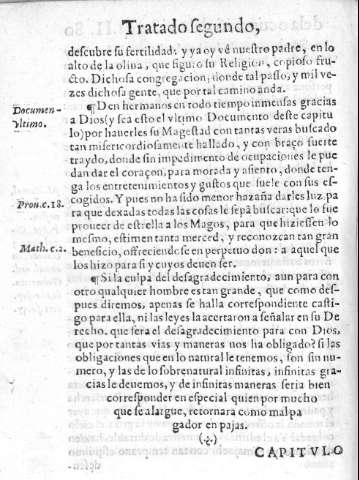 Tratado segundo,
descubre su fertilidad: y ya oy vé nuestro padre, en lo
alto de la oliua, que figuró su Religion, copioso fru-
cto. Dichosa congregacion, donde tal passo, y mil ve-
zes dichosa gente, que por tal camino anda.
Documen-
vltimo.
¶ Den hermanos en todo tiempo inmensas gracias
a Dios (y sea esto el vltimo Documento deste capitu
lo) por hauerles su Magestad con tantas veras buscado
tan misericordiosamente hallado, y con braço sucite
traydo, donde sin impedimento de ocupaciones le pue
dan dar el coraçon, para morada y assiento, donde ten-
ga los entretenimientos y gustos que suele con sus es-
Prou.c.18.
cogidos. Y pues no ha sido menor hazaña darles luz pa
ra que dexadas todas las cosas le sepã buscar: que lo fue
proueer de estrella a los Magos, para que hiziessen lo
Math.c.2.
mesmo, estimen tanta merced, y reconozcan tan gran
beneficio, offreciendose en perpetuo don: a aquel que
los hizo para si y cuyos deuen ser.
¶ Si la culpa del desagradecimiento, aun para con
otro qualquier hombre es tan grande, que como des-
pues diremos, apenas se halla correspondiente casti-
go para ella, ni las leyes la acertaron a señalar en su De
recho. que sera el desagradecimiento para con Dios,
que por tantas vias y maneras nos ha obligado? si las
obligaciones que en lo natural le tenemos, son sin nu-
mero, y las de lo sobrenatural infinitas, infinitas gra-
cias le deuemos, y de infinitas maneras seria bien
corresponder en especial quien por mucho
que se alargue, retornara como mal pa
gador en pajas.
CAPITVLO